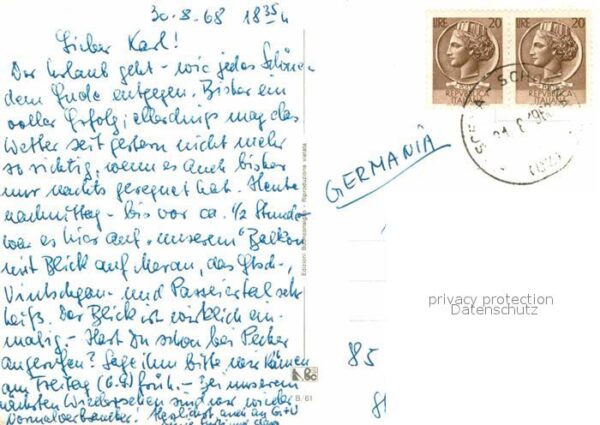 30.8.68 18 35 h
Lieber Karl!
Der Urlaub geht - wie jedes Schöne
dem Ende entgegen. Bisher ein
voller Erfolg; allerdings mag das
Wetter seit gestern nicht mehr
so richtig, wenn es auch bisher
nur nachts geregnet hat. Heute
nachmittag - bis vor ca. 1/2 Stunde
war es hier auf "unserem" Balkon
mit Blick auf Meran, das Etsch-,
Vintschgau- und Passeiertal sehr
heiß. Der Blick ist wirklich ein-
malig. - Hast Du schon bei Pecher
angerufen? Sage ihm bitte, wir kämen
am Freitag (6.9) früh. - Bei unserem
nächsten Wiedersehen sind wir wieder
Normalverbraucher! Herzlichst, auch an
LIRE 20
LIRE 20
REPVBBLICA
ITALIANA
REPVBBLICA
ITALIANA
GERMANIA
Riproduzione vietata
Edizioni
B/61
privacy protection
Datenschutz
85